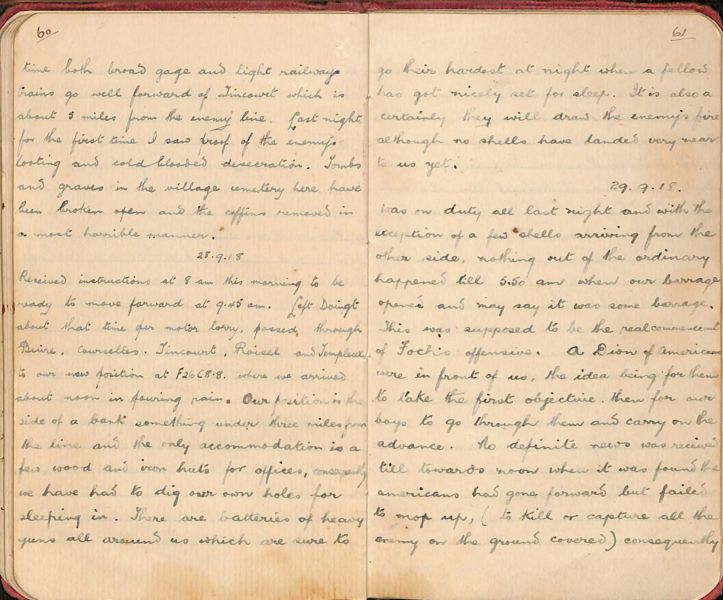 60
time both broad gage and light railways
trains go well forward of Tincourt which is
about 5 miles from the enemy line. Last night
for the first time I saw proof of the enemy's
looting and cold blooded desecration. Tombs
and graves in the village cemetery here have
been broken open and the coffins removed in
a most horrible manner.
28.9.18
Received instructions at 8 am this morning to be
ready to move forward at 9.45 am. Left Doingt
about that time per motor lorry, passed through
Buire, Courcelles. Tincourt, Roisel and Templeux
to our new position at F26C8.8. where we arrived
about noon in pouring rain. Our position is the
side of a bank something under three miles from
the line and the only accommodation is a
few wood and iron huts for offices, consequently
we have had to dig our own holes for
sleeping in. There are batteries of heavy
guns all around us which are sure to
61
go their hardest at night when a fellow
has got nicely set for sleep. It is also a
certainty they will draw the enemy's fire
although no shells have landed very near
to us yet.
29.9.18.
Was on duty all last night and with the
exception of a few shells arriving from the
other side, nothing out of the ordinary
happened till 5.50 am when our barrage
opened and may say it was some barrage.
This was supposed to be the real commencement
of Foch's offensive. A Dion of Americans
were in front of us, the idea being for them
to take the first objective, then for our
boys to go through them and carry on the
advance. No definite news was received
till towards noon when it was found the
americans had gone forward but failed
to mop up, (to kill or capture all the
enemy on the ground covered) consequently